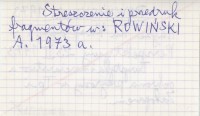 Streszczenie i przedruk
fragmentów ws ROWIŃSKI
A. 1973 a.